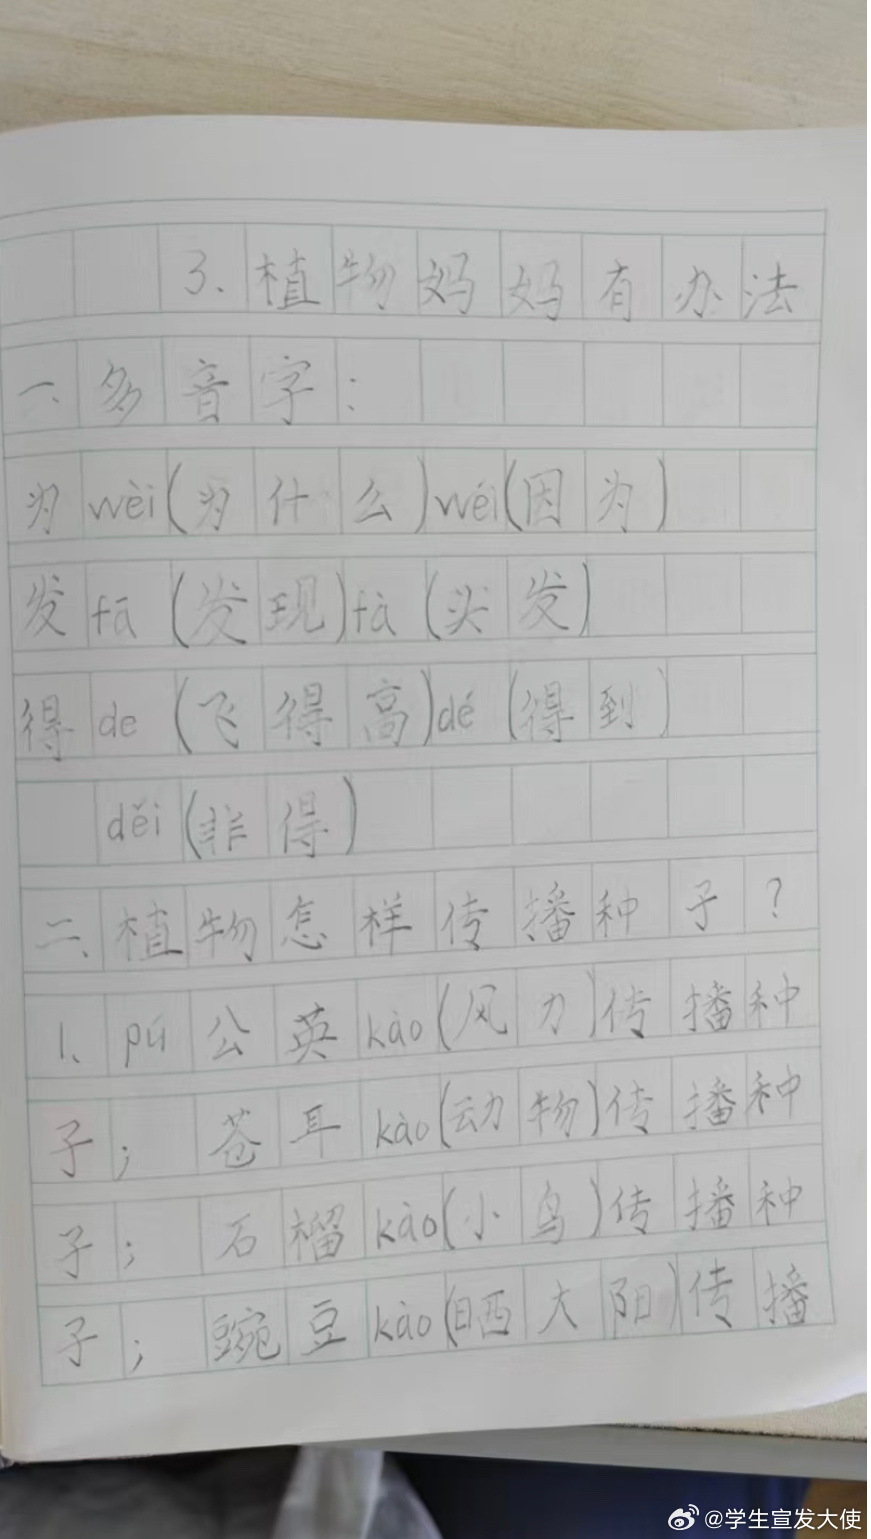 3.植物妈妈有办法
一、多音字：
为wèi(为什么)wéi(因为)
发fā(发现)fà(头发)
得de(飞得高)dé(得到)
děi(非得)
二、植物怎样传播种子？
1、pú公英kào(风力)传播种
子；苍耳kào(动物)传播种
子；石榴kào(小鸟)传播种
子；豌豆kào(晒大阳)传播
@学生宣发大使